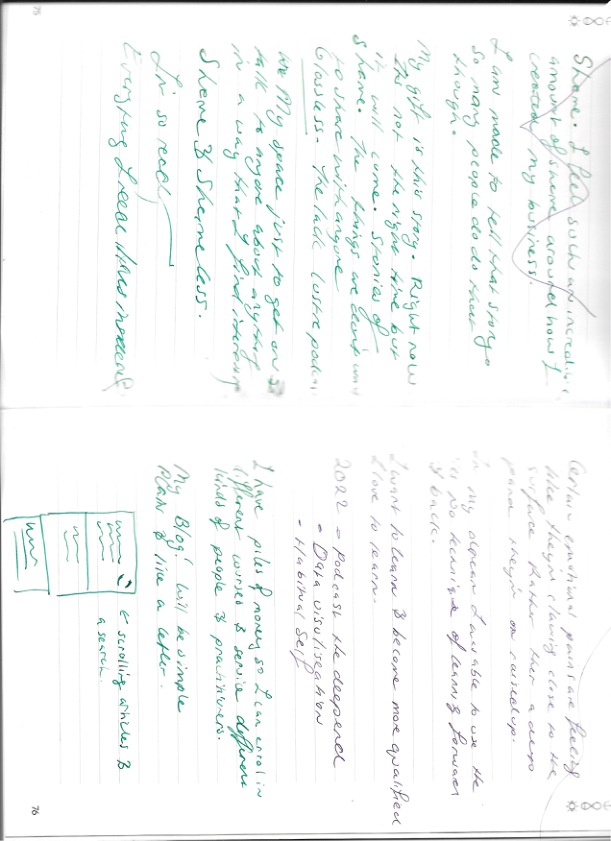 75
Shame. I feel such an incredible
amount of shame around how I
created my business.
I am made to tell that story
So many people do do that
though.
My gift is this story. Right now
its not the right time but
it will come. Stories of
Shame. The things we don't want
to share with anyone
Glassless. The lack lustre podcast
My space just to get on &
talk to anyone about anything
in a way that I find interesting
Shame & Shameless.
I'm so ready
Everything I
Certain emotional pains are feeling
like they're clawing close to the
surface Rather than a deep
pain they're on raised up.
In my dream I was able to use the
technique of leaning forward
& back.
I want to learn & become more qualified
I love to learn.
2022 - Podcast the deepend
- Data visulisation
- Habitual Self
I have piles of money so I can enrol in
different courses & service different
kinds of people & practitioners.
My Blog! Will be simple
Plain & like a letter.
← scrolling articles &
a search.
76